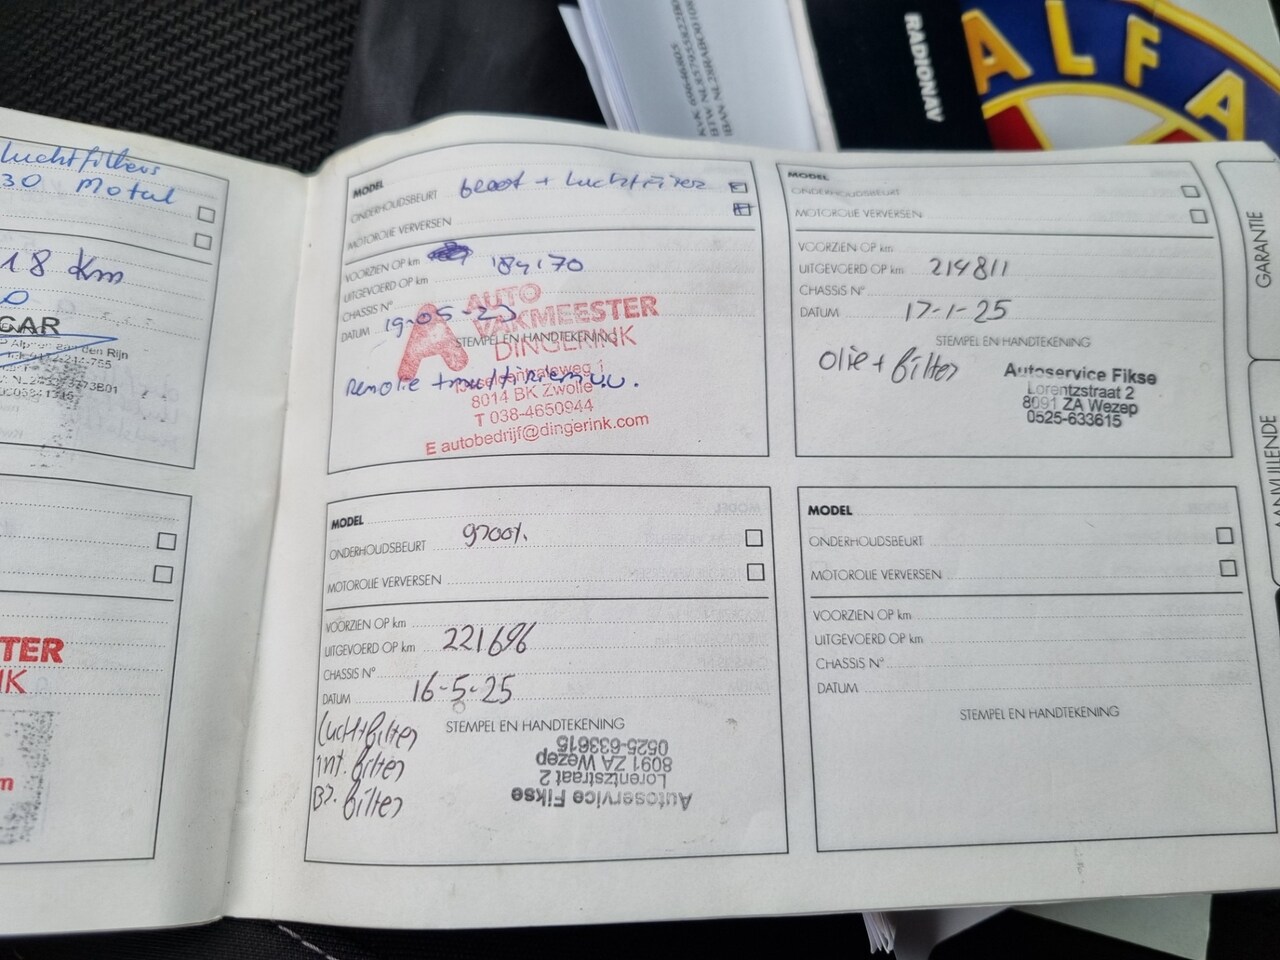 RADIONAV
ALFA
luchtfilters
30 Motul
18 Km
CAR
Alphen aan den Rijn
TER
MODEL
ONDERHOUDSBEURT + luchtfilter
MOTOROLIE VERVERSEN
VOORZIEN OP km
UITGEVOERD OP km 184170
CHASSIS N°
DATUM 19-05-23
STEMPEL EN HANDTEKENING
AUTO
VAKMEESTER
DINGERINK
Remolie
8014 BK Zwolle
T 038-4650944
E autobedrijf@dingerink.com
MODEL
ONDERHOUDSBEURT
MOTOROLIE VERVERSEN
VOORZIEN OP km
UITGEVOERD OP km 214811
CHASSIS N°
DATUM 17-1-25
STEMPEL EN HANDTEKENING
olie + filter
Autoservice Fikse
Lorentzstraat 2
8091 ZA Wezep
0525-633615
MODEL
ONDERHOUDSBEURT groot.
MOTOROLIE VERVERSEN
VOORZIEN OP km
UITGEVOERD OP km 221696
CHASSIS N°
DATUM 16-5-25
STEMPEL EN HANDTEKENING
luchtfilter
int. filter
Br. filter
Autoservice Fikse
Lorentzstraat 2
8091 ZA Wezep
0525-633615
MODEL
ONDERHOUDSBEURT
MOTOROLIE VERVERSEN
VOORZIEN OP km
UITGEVOERD OP km
CHASSIS N°
DATUM
STEMPEL EN HANDTEKENING
GARANTIE
AANVULLENDE